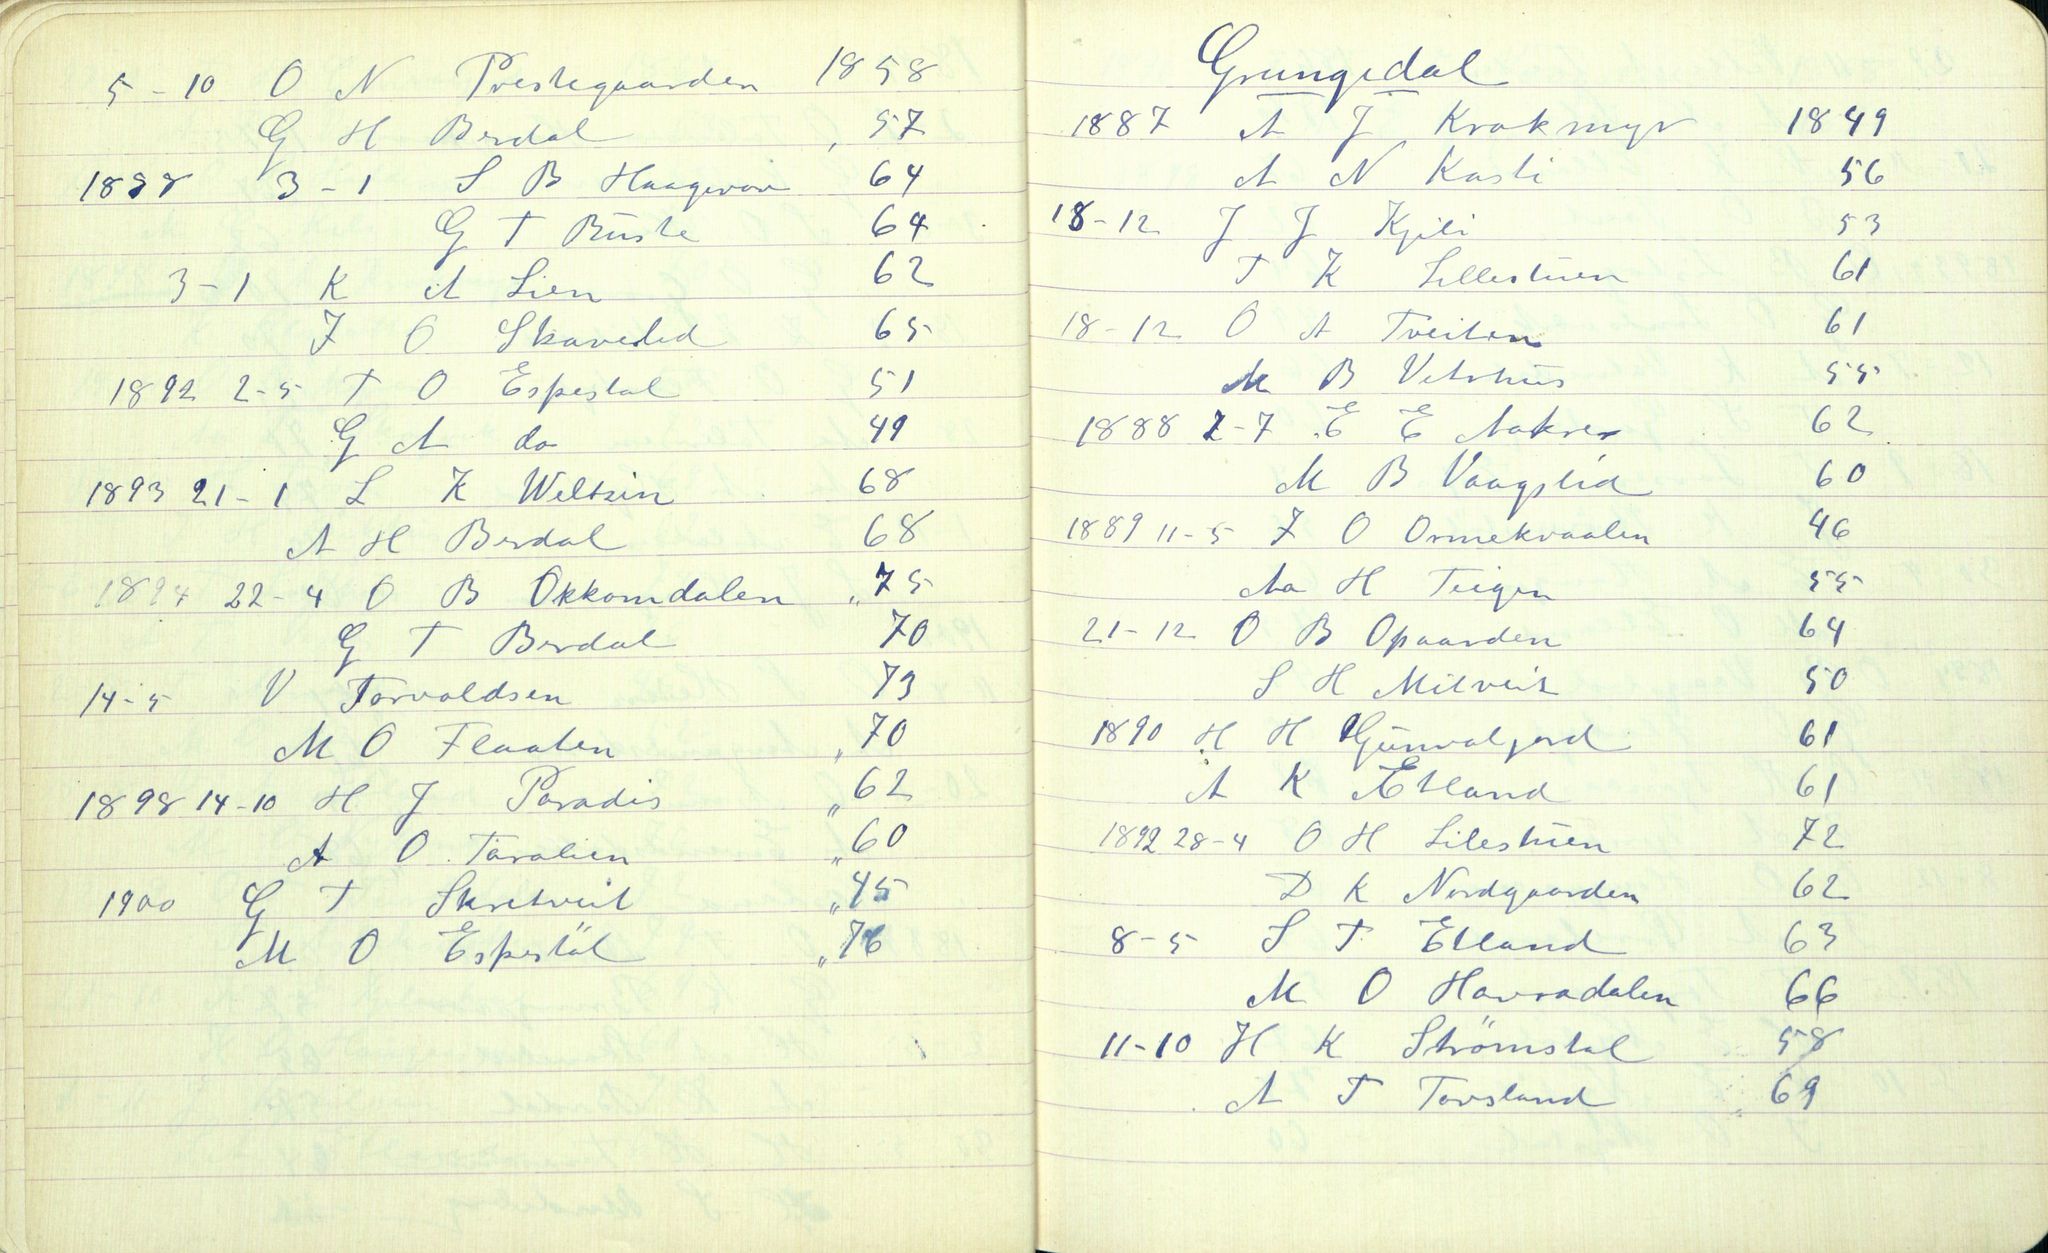 5-10 O N Prestegaarden 1858
G H Berdal , 57
1888 3-1 S B Haagervor 64
G T Büste 64
3-1 K A Lien 62
I O Skaverlid 65
1892 2-5 T O Espestøl 51
G A do 49
1893 21-1 L K Weltzin 68
A H Berdal 68
1894 22-4 O B Okkomdalen „ 75
G T Berdal 70
14-5 V Torvaldsen 73
M O Flaaten „ 70
1898 14-10 H J Paradis „ 62
A O Taralien „ 60
1900 G T Skretveit „ 45
M O Espestöl „ 76
Grungedal
1887 A J Krokmyr 1849
A N Kasti 56
18-12 J J Kjili 53
T K Lillestüen 61
18-12 O A Tveiten 61
M B Vetrhüs 55
1888 2-7 E E Aakre 62
M B Vaagslid 60
1889 11-5 I O Ormekvaalen 46
Aa H Teigen 55
21-12 O B Opaarden 64
S H Mitveit 50
1890 H H Günvalgard 61
A K Etland 61
1892 28-4 O H Lilestüen 72
D K Nordgaarden 62
8-5 S T Etland 63
M O Havradalen 66
11-10 H K Strömstøl 58
A T Torsland 69